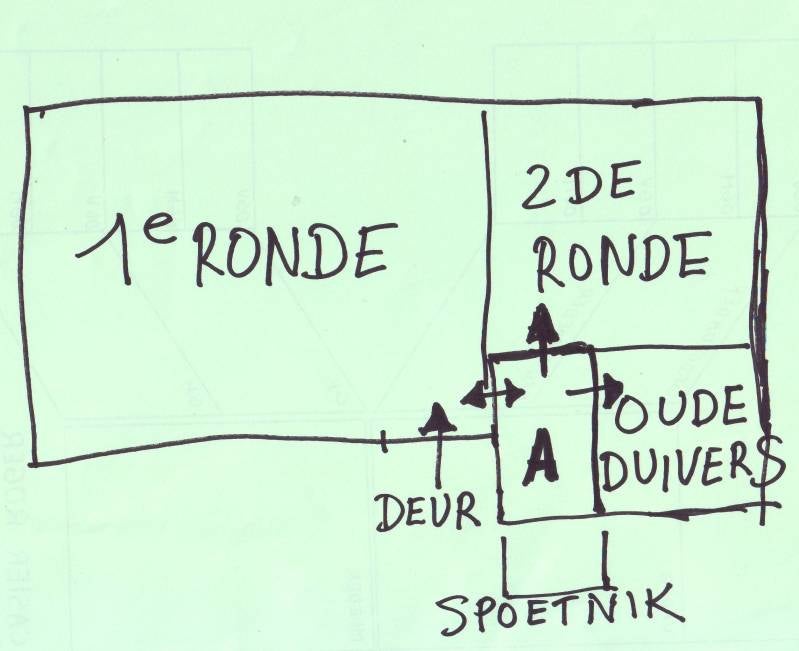 1e RONDE
2DE
RONDE
A
OUDE
DUIVERS
DEUR
SPOETNIK